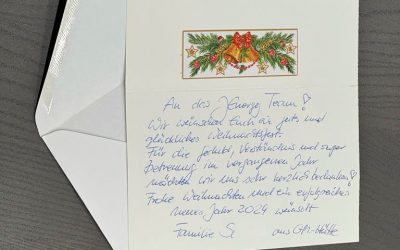 An das JEnergy Team!
Wir wünschen Euch ein gutes und
glückliches Weihnachtsfest.
Für die Geduld, Verständnis und super
Betreuung im vergangenen Jahr
möchten wir uns sehr herzlich bedanken!
Frohe Weihnachten und ein erfolgreiches
neues Jahr 2024 wünscht
Familie S. aus GM-Hütte